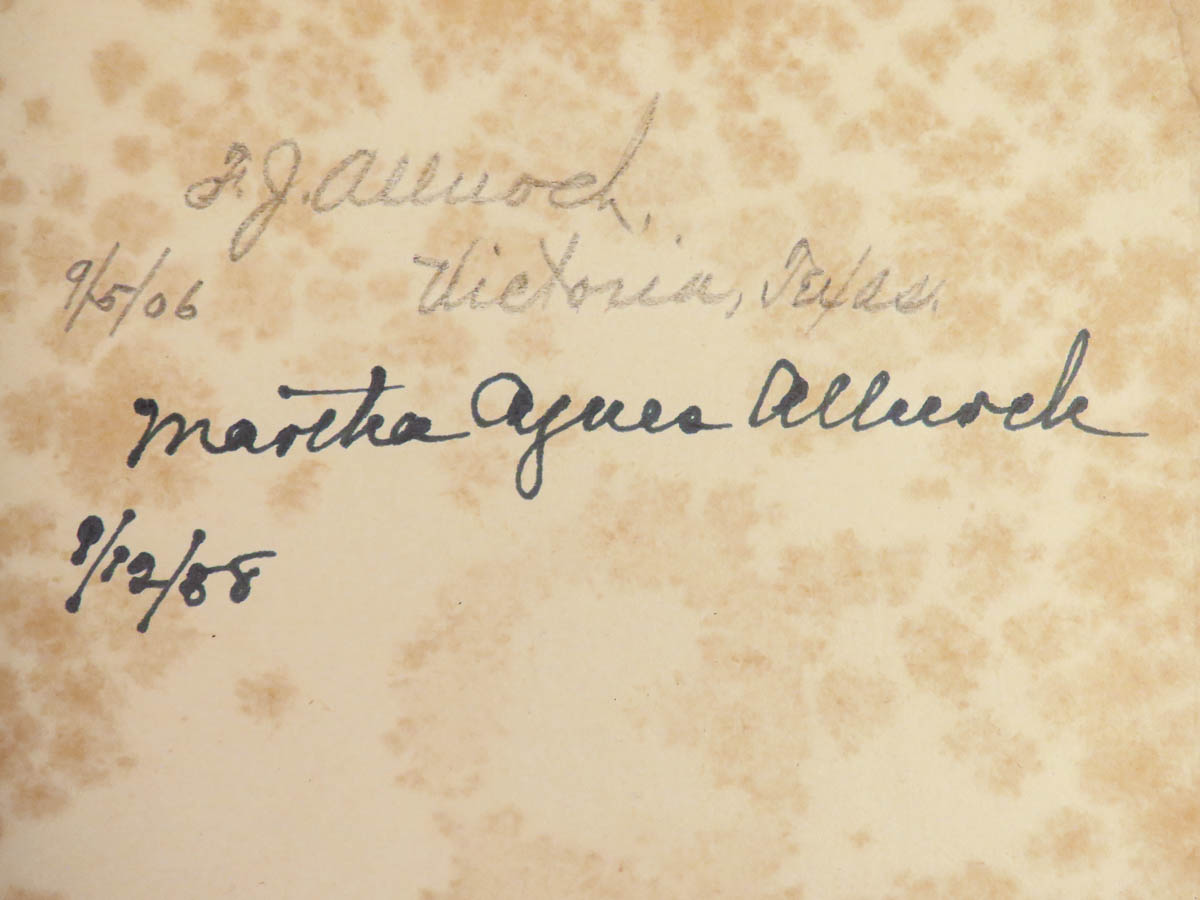 F. J. Allnoch,
9/5/06 Victoria, Texas.
Martha Agnes Allnoch
9/12/88